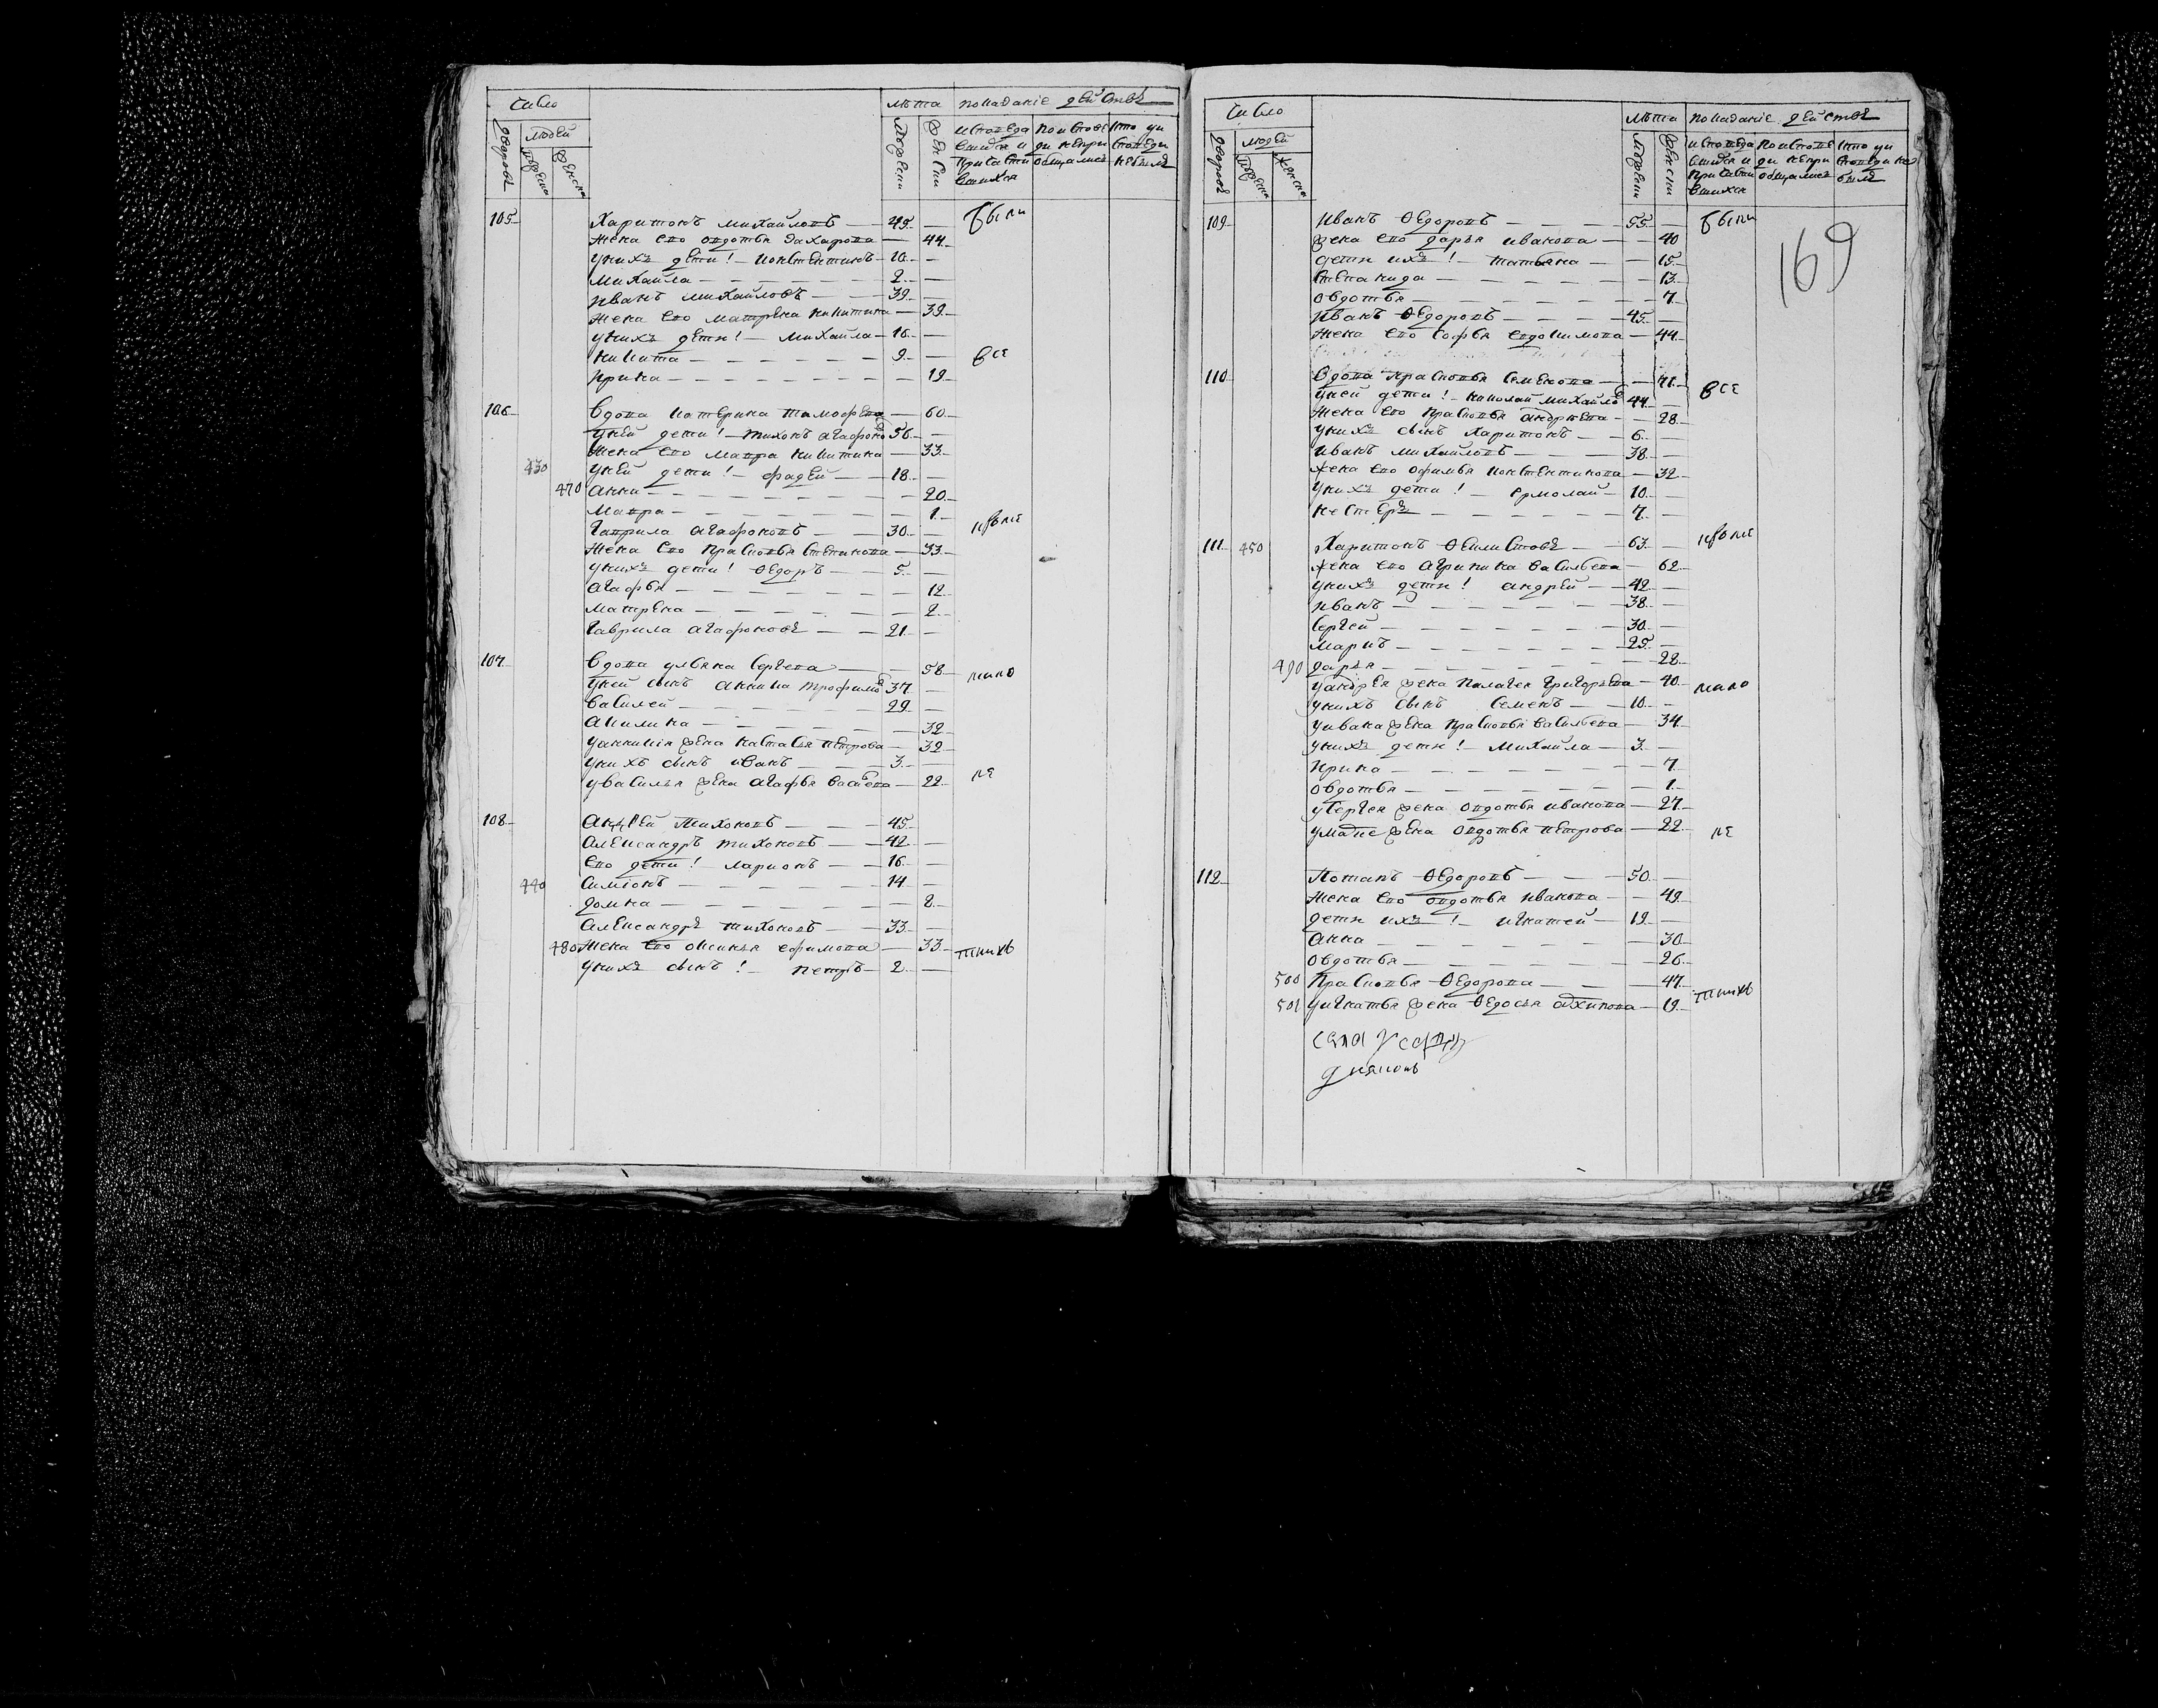 Число
Лѣта
Показаніе действъ
дворовъ
людей
мужеска
женска
мужески
женски
исповеда
вшихся и
причасти
вшихся
по испове
ди не при
общались
кто у и
споведи
не былъ
105
Харитонъ михайловъ — 45
были
жена его овдотья Захарова — 44
у нихъ дети! — Константинъ — 10
михайла — 2
иванъ михайловъ — 39
жена его матрена никитина — 39
у нихъ дети! — михайла — 16
никита — 9
все
ирина — 19
106
вдова катерина тимофева — 60
у ней дети! — тихонъ агафоно 36
жена его мавра никитина — 33
430
у ней дети! — фадей — 18
470
анна — 20
мавра — 1
гаврила агафоновъ — 30
жена его прасковья степанова — 33
у нихъ дети! Ѳедоръ — 5
агафья — 12
матрена — 2
гаврила агафоновъ — 21
107
вдова ульяна Сергева — 58
у ней сынъ аникиа трофимо 37
василей — 29
акилина — 32
у аникия жена настасья петрова — 32
у нихъ сынъ иванъ — 3
не
у василья жена агафья васильева — 22
108
андрей тихоновъ — 45
александръ тихоновъ — 42
его дети! — ларионъ — 16
440
симіонъ — 14
домна — 8
александръ тихоновъ — 33
480
жена его оксинья ефимова — 33
у нихъ сынъ! — петръ — 2
Число
Лѣта
Показаніе действъ
дворовъ
людей
мужеска
женска
мужески
женски
исповеда
вшихся и
причасти
вшихся
по испове
ди не при
общались
кто у и
споведи не
былъ
169
109
иванъ Ѳедоровъ — 55
были
жена его дарья иванова — 40
дети ихъ! — татьяна — 15
степанида — 13
овдотья — 7
иванъ Ѳедоровъ — 45
жена его софья евдокимова — 44
110
вдова прасковья семенова — 71
все
у ней дети! — николай михайло 44
жена его прасковья андреева — 28
у нихъ сынъ харитонъ — 6
иванъ михайловъ — 38
жена его офимья константинова — 32
у нихъ дети! — ермолай — 10
нестеръ — 7
111
450
Харитонъ Ѳеклистовъ — 63
жена его агрипина васильева — 62
у нихъ дети! андрей — 42
иванъ — 38
Сергей — 30
490
дарья — 28
у андрея жена пилагея григорьева — 40
у нихъ сынъ семенъ — 10
у ивана жена прасковья васильева — 34
у нихъ дети! — михайла — 3
ирина — 7
овдотья — 1
у сергея жена овдотья иванова — 27
жена овдотья петрова — 22
не
112
потапъ Ѳедоровъ — 50
жена его овдотья иванова — 49
дети ихъ! — игнатей — 19
анна — 30
овдотья — 26
500
прасковья Ѳедорова — 47
501
у игнатья жена Ѳедосья архипова — 19
села
дияконъ